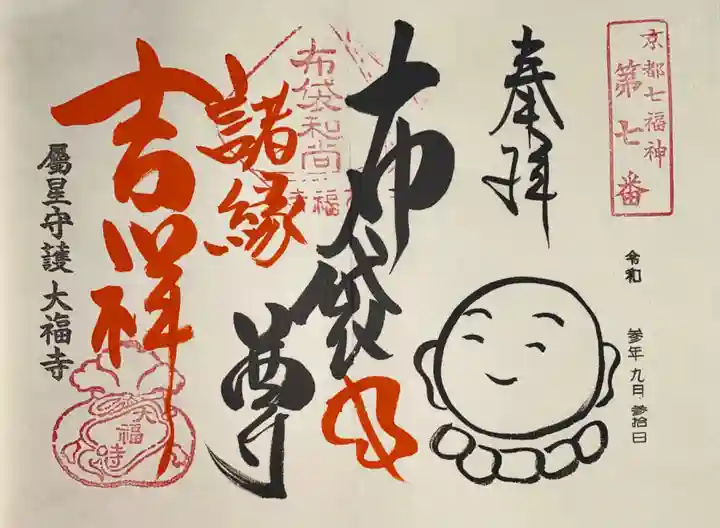 京都七福神
第七番
奉拝
令和 参年九月参拾日
布袋尊
布袋和尚
諸縁
吉祥
屬星守護 大福寺
大福寺